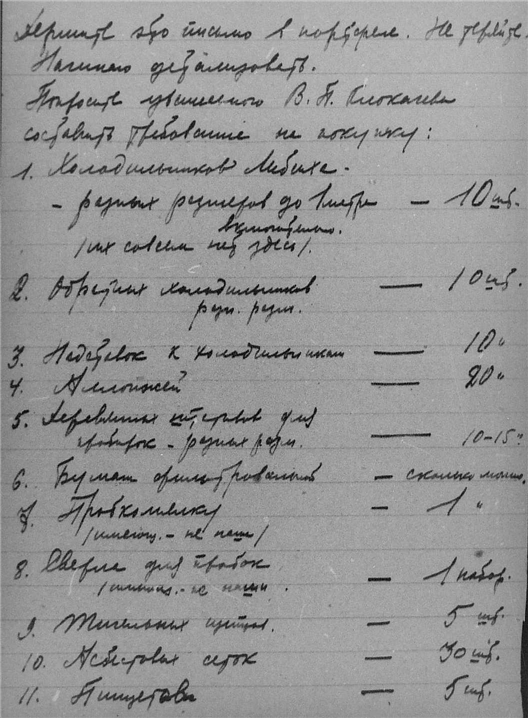 Держите это письмо в портфеле. Не теряйте.
Начинаю детализовать.
Попросите уважаемого В. П. Клокачева
составить требование на покупку:
1. Холодильников Либиха -
- разных размеров до 1 метра — 10 шт.
включительно.
/их совсем нет здесь/.
2. Обратных холодильников — 10 шт.
разн. разм.
3. Надставок к холодильникам — 10 "
4. Аллонжей — 20 "
5. Деревянных штативов для
пробирок - разных разм. — 10-15 "
6. Бумаги фильтровальной — сколько можно.
7. Пробкомялку — 1 "
/имеющ. - не наша/
8. Сверла для пробок
/имеющ. - не наши — 1 набор.
9. Тигельных щипцов. — 5 шт.
10. Асбестовых сеток — 30 шт.
11. Пинцетов — 5 шт.